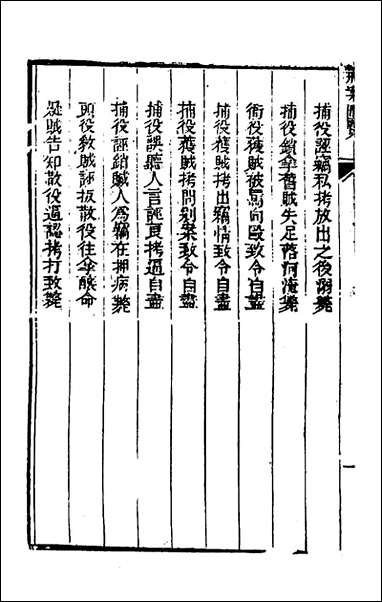 捕役誣竊私拷放出之後溺斃
捕役鎖拿舊賊失足落河淹斃
衙役獲賊被罵向毆致令自盡
捕役獲賊拷出竊情致令自盡
捕役獲賊拷問別案致令自盡
捕役誤聽人言誣良拷逼自盡
捕役誣績賊人為竊在押病斃
頭役教賊誣扳散役往拿釀命
疑賊告知散役逼認拷打致斃